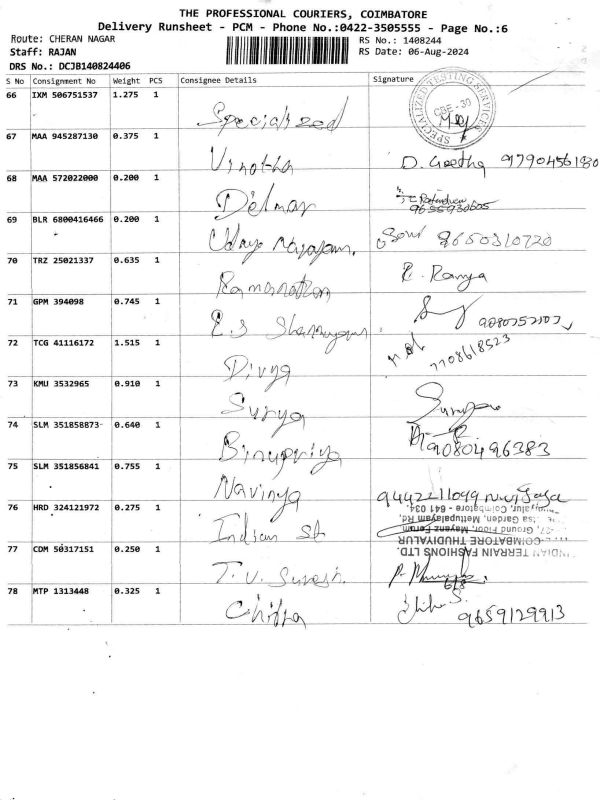 THE PROFESSIONAL COURIERS, COIMBATORE
Delivery Runsheet - PCM - Phone No.:0422-3505555 - Page No.:6
Route: CHERAN NAGAR
RS No.: 1408244
Staff: RAJAN
RS Date: 06-Aug-2024
DRS No.: DCJB140824406
S No Consignment No Weight PCS Consignee Details Signature
66 IXM 506751537 1.275 1
Specialized
SPECIALIZED TESTING SERVICES
CBE-30
67 MAA 945287130 0.375 1
Vinotha D. Geetha 9790456180
68 MAA 572022000 0.200 1
Delmar 9655930605
69 BLR 6800416466 0.200 1
Udaya Narayanan. 9650310720
70 TRZ 25021337 0.635 1
Ramanathan R. Ramya
71 GPM 394098 0.745 1
E.S Shanmugam
72 TCG 41116172 1.515 1
Divya 7708618523
73 KMU 3532965 0.910 1
Surya
74 SLM 351858873 0.640 1
Binupriya 9080496383
75 SLM 351856841 0.755 1
Navinya 9442211099
76 HRD 324121972 0.275 1
Indian st
77 CDM 50317151 0.250 1
T.V. Suresh.
INDIAN TERRAIN FASHIONS LTD.
COIMBATORE THUDIYALUR
Ground Floor, Mayanz Forum
Garden, Mettupalayam Rd,
Coimbatore - 641 034.
78 MTP 1313448 0.325 1
Chitra 9659129913